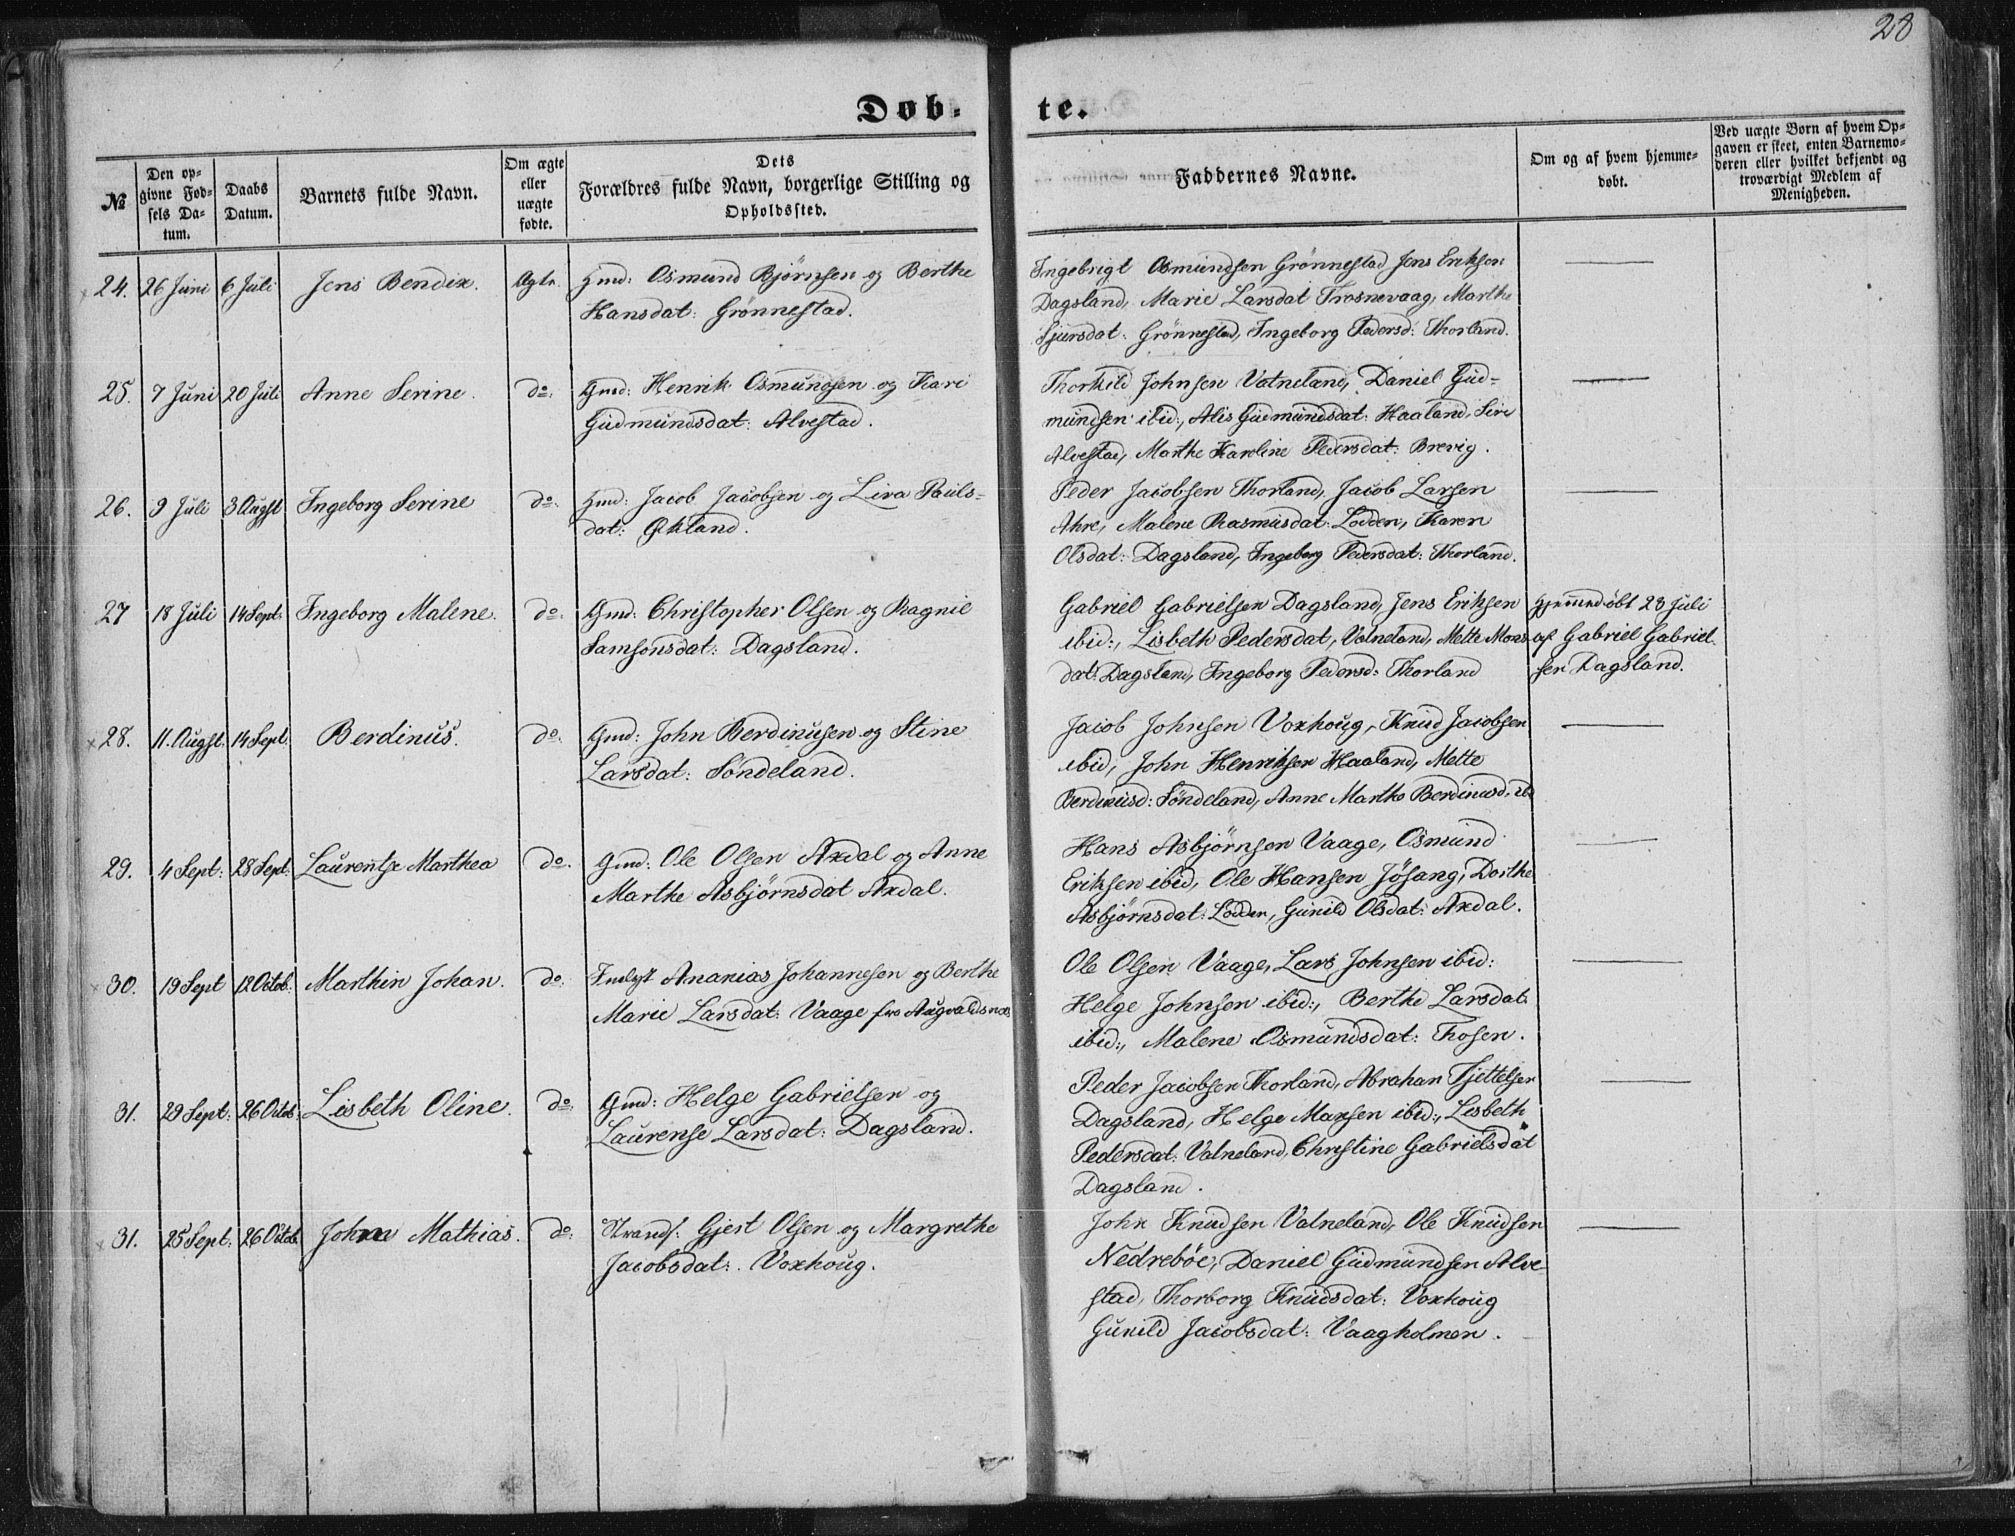 28
Døb-
te.
№
Den op-
givne Fød-
sels Da-
tum.
Daabs
Datum.
Barnets fulde Navn.
Om ægte
eller
uægte
fødte.
Dets
Forældres fulde Navn, borgerlige Stilling og
Opholdssted.
Faddernes Navne.
Om og af hvem hjemme-
døbt.
Ved uægte Børn af hvem Op-
gaven er skeet, enten Barnemo-
deren eller hvilket bekjendt og
troværdigt Medlem af
Menigheden.
24. 26 Juni 6 Juli Jens Bendix. Ægte. Gmd: Osmund Bjørnsen og Berthe
Hansdat: Grönnestad.
Ingebrigt Osmundsen Grönnestad Jens Eriksen
Dagsland, Marie Larsdat Trosnevaag, Marthe
Sjursdat: Grönnestad, Ingeborg Pedersd: Thorland.
25. 7 Juni 20 Juli Anne Serine. do: Gmd: Henrik Osmundsen og Kari
Gudmundsdat: Alvestad.
Thorkild Johnsen Vatneland, Daniel Gud-
mundsen ibid:, Alis Gudmundsdat: Haaland, Siri
Alvestad, Marthe Karoline Pedersdat: Brevig.
26. 9 Juli 3 Augst Ingeborg Serine do: Gmd: Jacob Jacobsen og Lira Pauls-
dat: Økland.
Peder Jacobsen Thorland, Jacob Larsen
Ahre, Malene Rasmusdat: Lodden, Karen
Olsdat: Dagsland, Ingeborg Pedersdat: Thorland.
27 18 Juli 14 Sept: Ingeborg Malene. do: Gmd: Christopher Olsen og Ragnil
Samsonsdat: Dagsland.
Gabriel Gabrielsen Dagsland, Jens Eriksen
ibid:, Lisbeth Pedersdat, Vatneland, Mette Mons-
dat: Dagsland, Ingeborg Pedersd: Thorland
Hjemmedøbt 23 Juli
af Gabriel Gabriel-
sen Dagsland.
28. 11. Augst. 14 Sept: Berdinus. do: Gmd: John Berdinusen og Stine
Larsdat: Söndeland.
Jacob Johnsen Voxhoug, Knud Jacobsen
ibid, John Henriksen Haaland, Mette
Berdinusd: Söndeland, Anne Marthe Berdinusd: ibd
29. 4 Sept: 28 Sept: Laurentse Marthea do. Gmd: Ole Olsen Axdal og Anne
Marthe Asbjørnsdat Axdal.
Hans Asbjørnsen Vaage, Osmund
Eriksen ibid, Ole Hansen Jösang, Dorthe
Asbjørnsdat: Lodden, Gunild Olsdat: Axdal.
30. 19 Sept 12 Octob: Marthin Johan. do: Indlgst Ananias Johannesen og Berthe
Marie Larsdat: Vaage fra Augvaldsnæs
Ole Olsen Vaage, Lars Johnsen ibid:
Helge Johnsen ibid:, Berthe Larsdat:
ibid:, Malene Osmundsdat: Thosen.
31. 29 Sept: 26 Octob: Lisbeth Oline. do: Gmd: Helge Gabrielsen og
Laurense Larsdat: Dagsland.
Peder Jacobsen Thorland, Abraham Kjettelsen
Dagsland, Helge Monsen ibid:, Lisbeth
Pedersdat: Vatneland, Christine Gabrielsdat
Dagsland.
31. 25 Sept: 26 Octob: John Mathias. do: Strands: Gjest Olsen og Margrethe
Jacobsdat: Voxhoug.
John Knudsen Vatneland, Ole Knudsen
Nedrebøe, Daniel Gudmundsen Alve-
stad, Thorborg Knudsdat: Voxhoug
Gunild Jacobsdat: Vaagholmen.